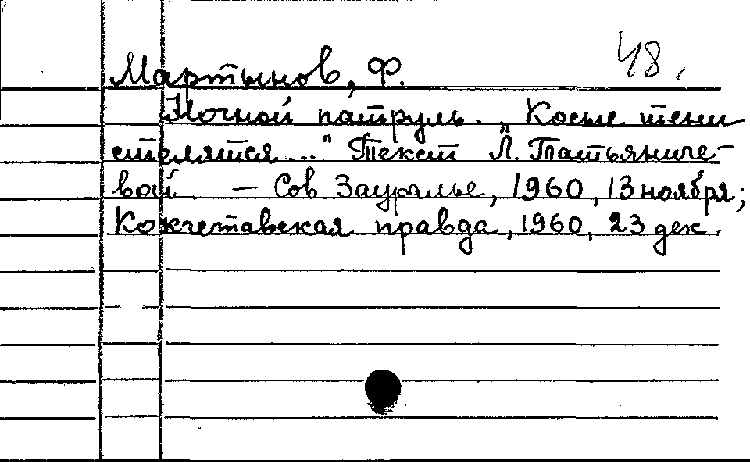 48.
Мартынов, Ф.
Ночной патруль. „Косые тени
стелятся..." Текст Л. Татьяниче-
вой — Сов Зауралье, 1960, 13 ноября;
Кокчетавская правда, 1960, 23 дек.